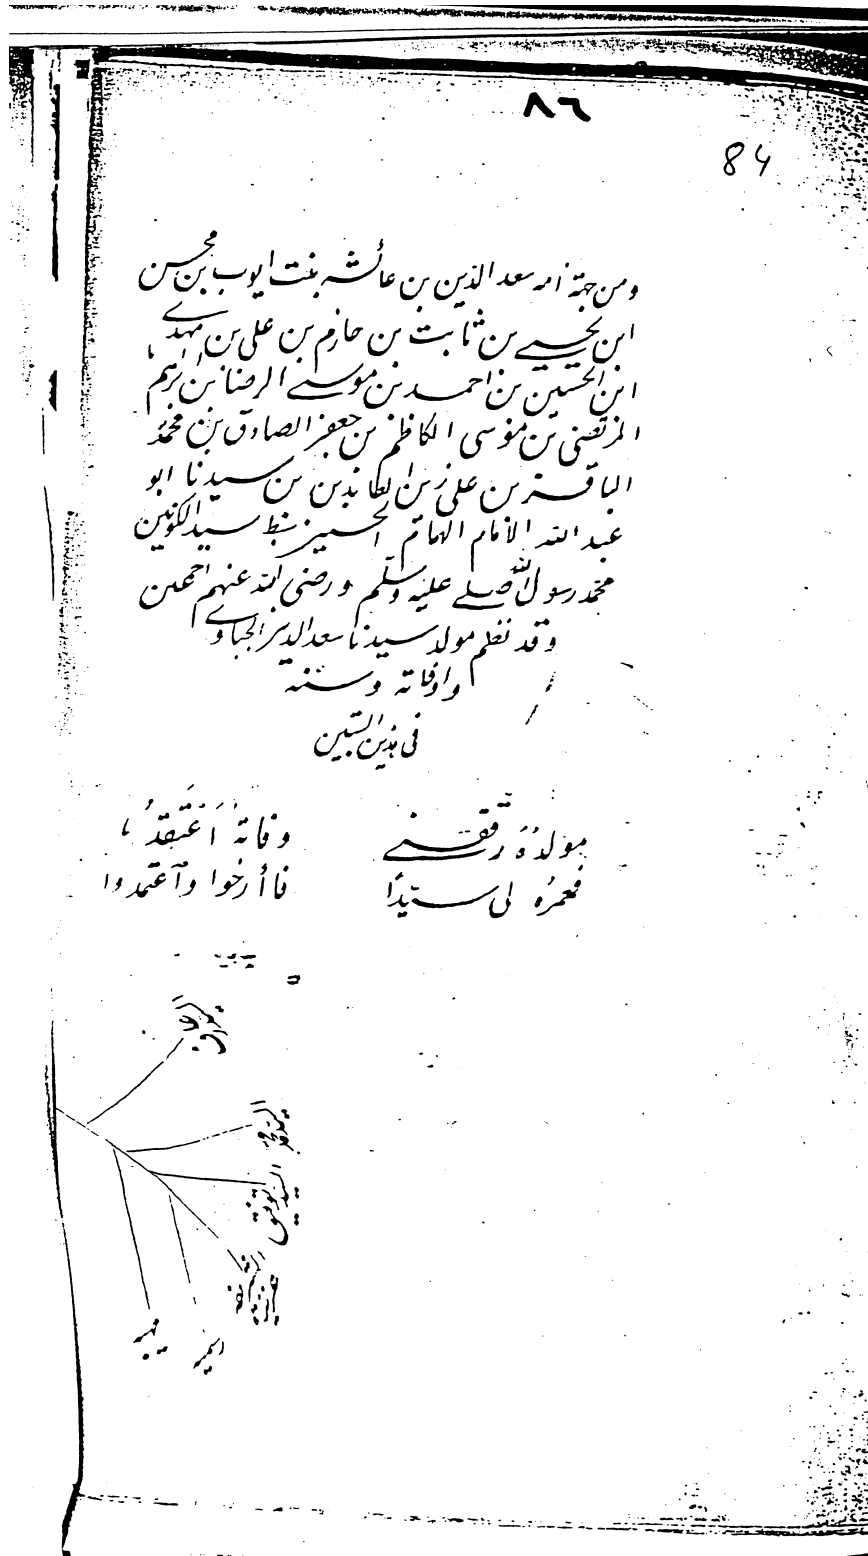 ٨٦
84
ومن جهة امه سعد الدين بن عائشه بنت ايوب بن محسن
ابن يحيى بن ثابت بن حازم بن علي بن مهدي
ابن الحسين بن احمد بن موسى الرضا بن ابرهيم
المرتضى بن موسى الكاظم بن جعفر الصادق بن محمد
الباقر بن علي زين العابدين بن سيدنا ابو
عبد الله الامام الهمام الحسين سبط سيد الكونين
محمد رسول الله صلى عليه وسلم ورضى الله عنهم اجمعين
وقد نظم مولد سيدنا سعد الدين الجباوي
واوفاته وسنه
في هذين البيتين
مولده وفاته اعتقدا
فعمره لي سيدا فاأرخوا وآعتمدوا
السيد محمد
السيد توفيق
مهيبه